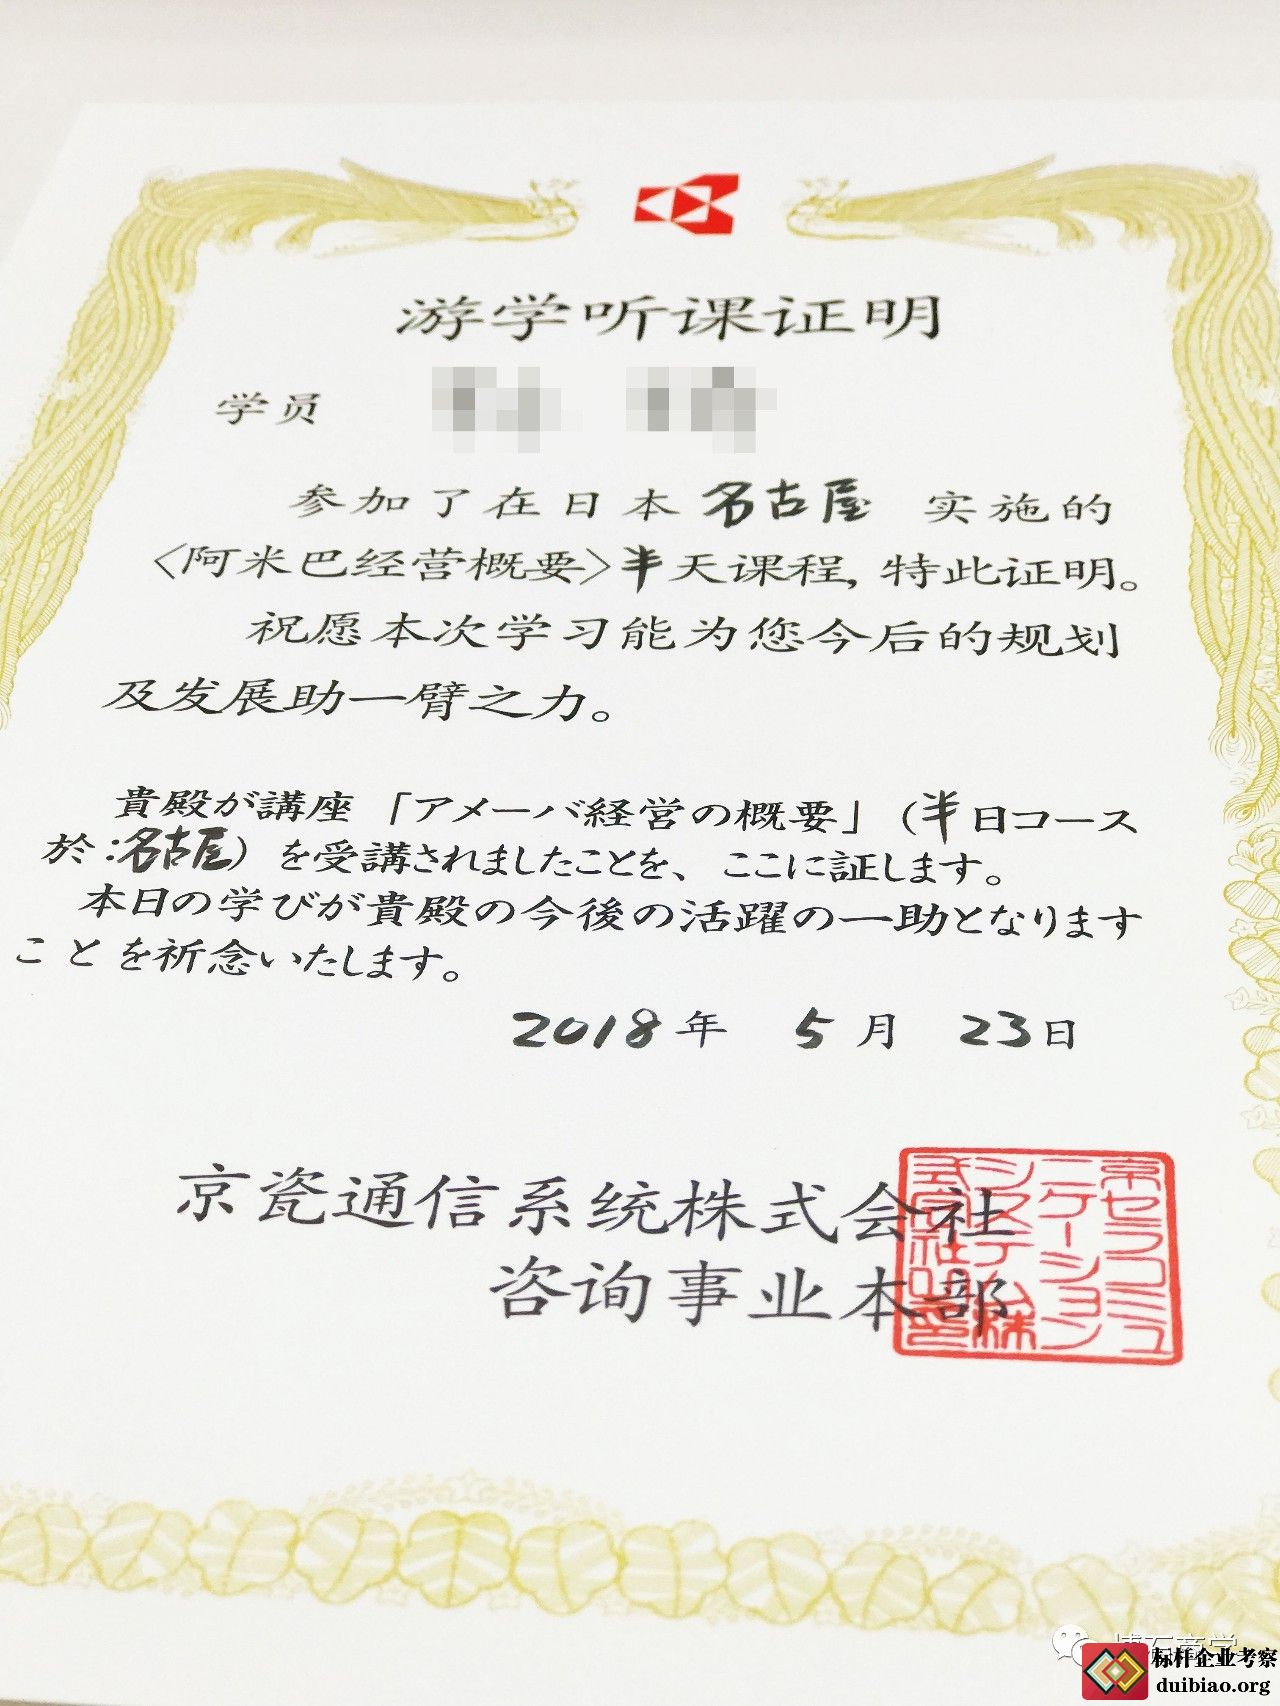 游学听课证明
学员
参加了在日本名古屋 实施的
〈阿米巴经营概要〉半天课程，特此证明。
祝愿本次学习能为您今后的规划
及发展助一臂之力。
貴殿が講座「アメーバ経営の概要」（半日コース
於：名古屋）を受講されましたことを、ここに証します。
本日の学びが貴殿の今後の活躍の一助となります
ことを祈念いたします。
2018年 5月 23日
京瓷通信系统株式会社
咨询事业本部
京セラコミュ
ニケーション
システム株
式会社
标杆企业考察
duibiao.org